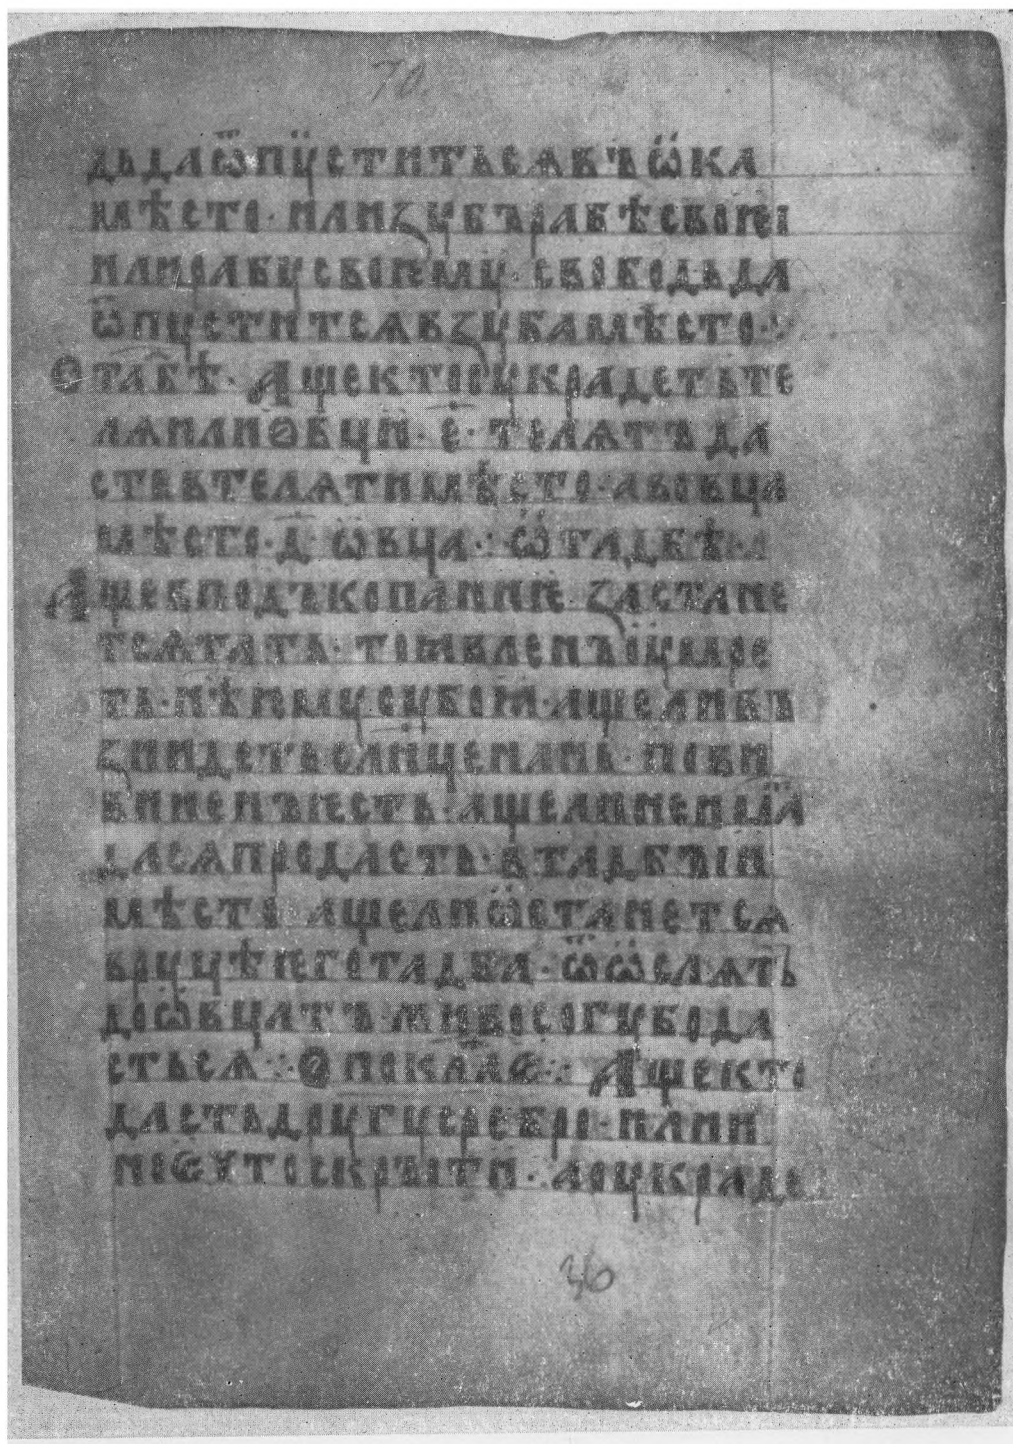 70
дьдаѿпꙋститьсѧвъѡка
мѣсто · илизꙋбърабѣсвоѥи
илирабꙋсвоѥмꙋ · свободьда
ѿпꙋститсѧвзꙋбамѣсто ·
Ѳтатьбѣ · Ащектооукрадетьте
лѧилиѻвци · е҃ · телѧтъда
стьвтелѧтимѣсто · авовца
мѣсто · д҃ · ѡвца ·: ѡтадбѣ ·
Ащевподъкопаниѥ застане
тсѧтать · тоꙗвленъоумре
ть · нѣѥмꙋоубоꙗ · ащеливъ
зиидетьсл҃нценань · пови
вининъѥсть · ащелинеима
дасѧпродасть · втадбъі
мѣсто ащелиѡстанетсѧ
врꙋцѣѥготадба · ѿѡслѧтъ
доѡвцатъмивосогꙋбода
стьсѧ ·:· Ѻпоклаже ·:· Ащекто
дастьдрꙋгꙋсребро · или
ноѥчтоскръıти · аоукраде
36